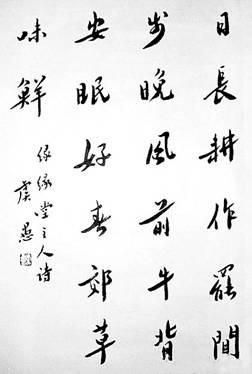 日長耕作罷間
步晚風前牛背
安眠好春郊草
味鮮
缘缘堂主人诗
虞愚